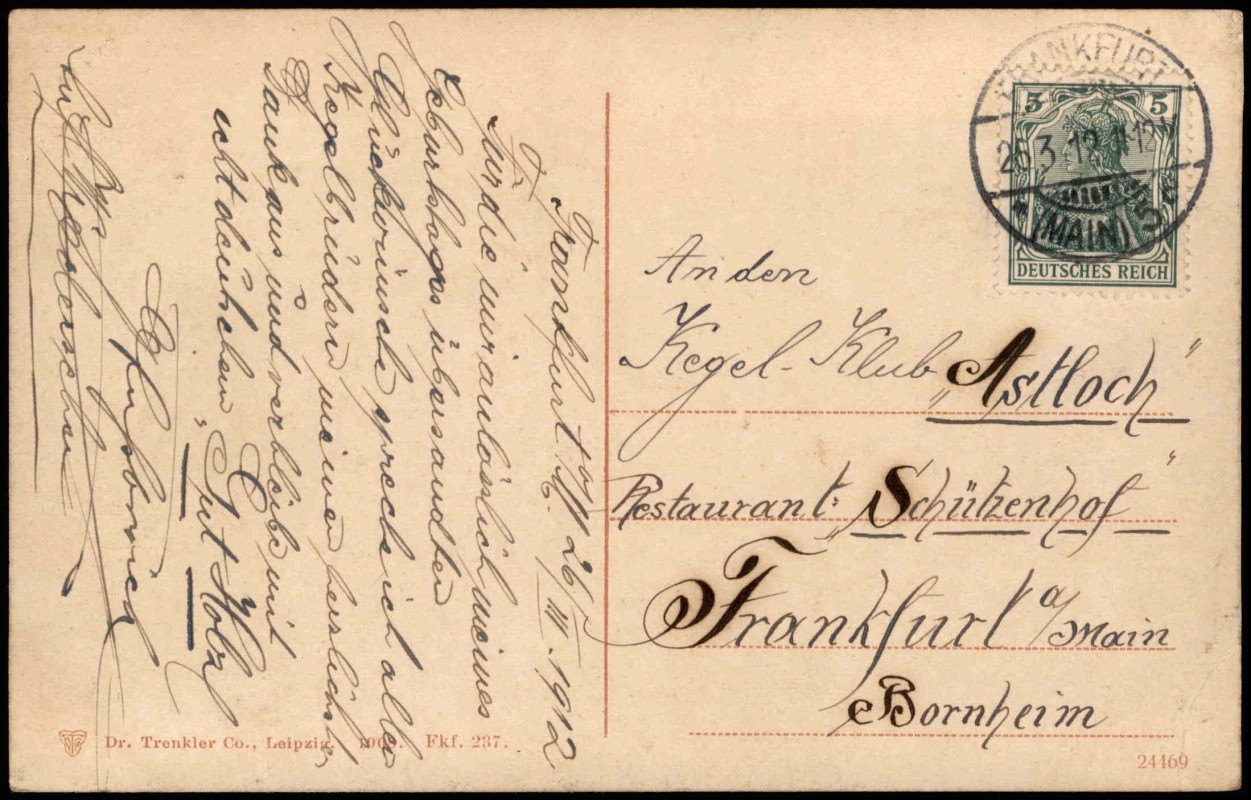 Frankfurt a/M 26/III. 1912
Für die mir anlässlich meines
Geburtstages übersandten
Glückwünsche spreche ich allen
Kegelbrüdern meinen herzlichst.
Dank aus und verbleibe mit
echt deutschem "Gut Holz
FRANKFURT
26.3.12.11-12V
* (MAIN) 5
5 5
DEUTSCHES REICH
An den
Kegel-Klub „Astloch"
Restaurant: „Schützenhof"
Frankfurt a/Main
Bornheim
Dr. Trenkler Co., Leipzig. Fkf. 237.
24469